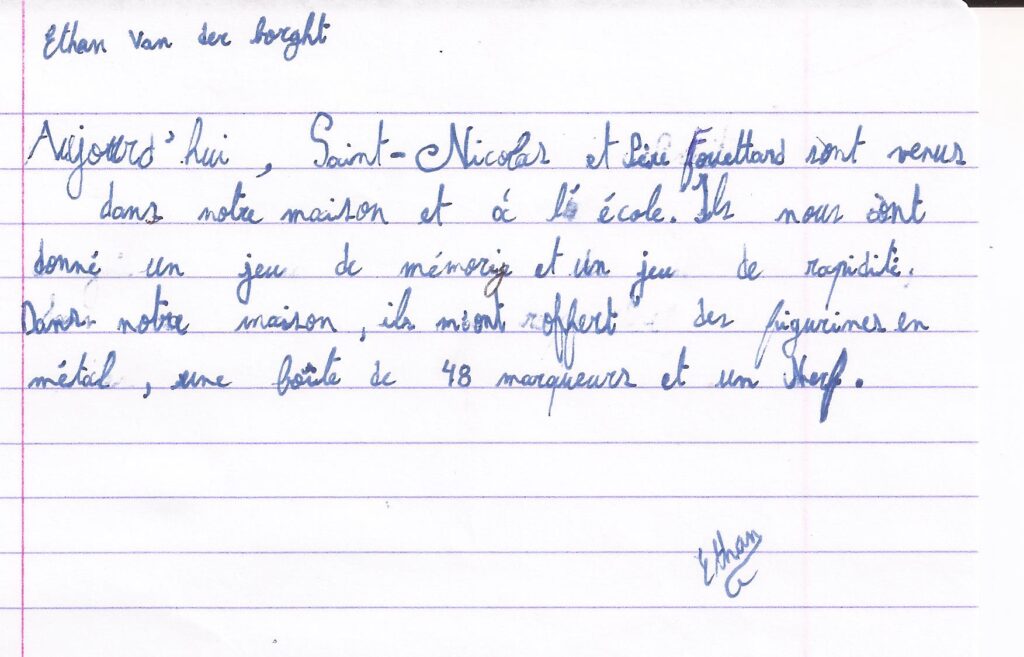 Ethan Van der borght
Aujourd'hui, Saint-Nicolas et Père Fouettard sont venus
dans notre maison et à l'école. Ils nous ont
donné un jeu de mémorie et un jeu de rapidité.
Dans notre maison, ils m'ont offert des figurines en
métal, une boîte de 48 marqueurs et un Nerf.
Ethan